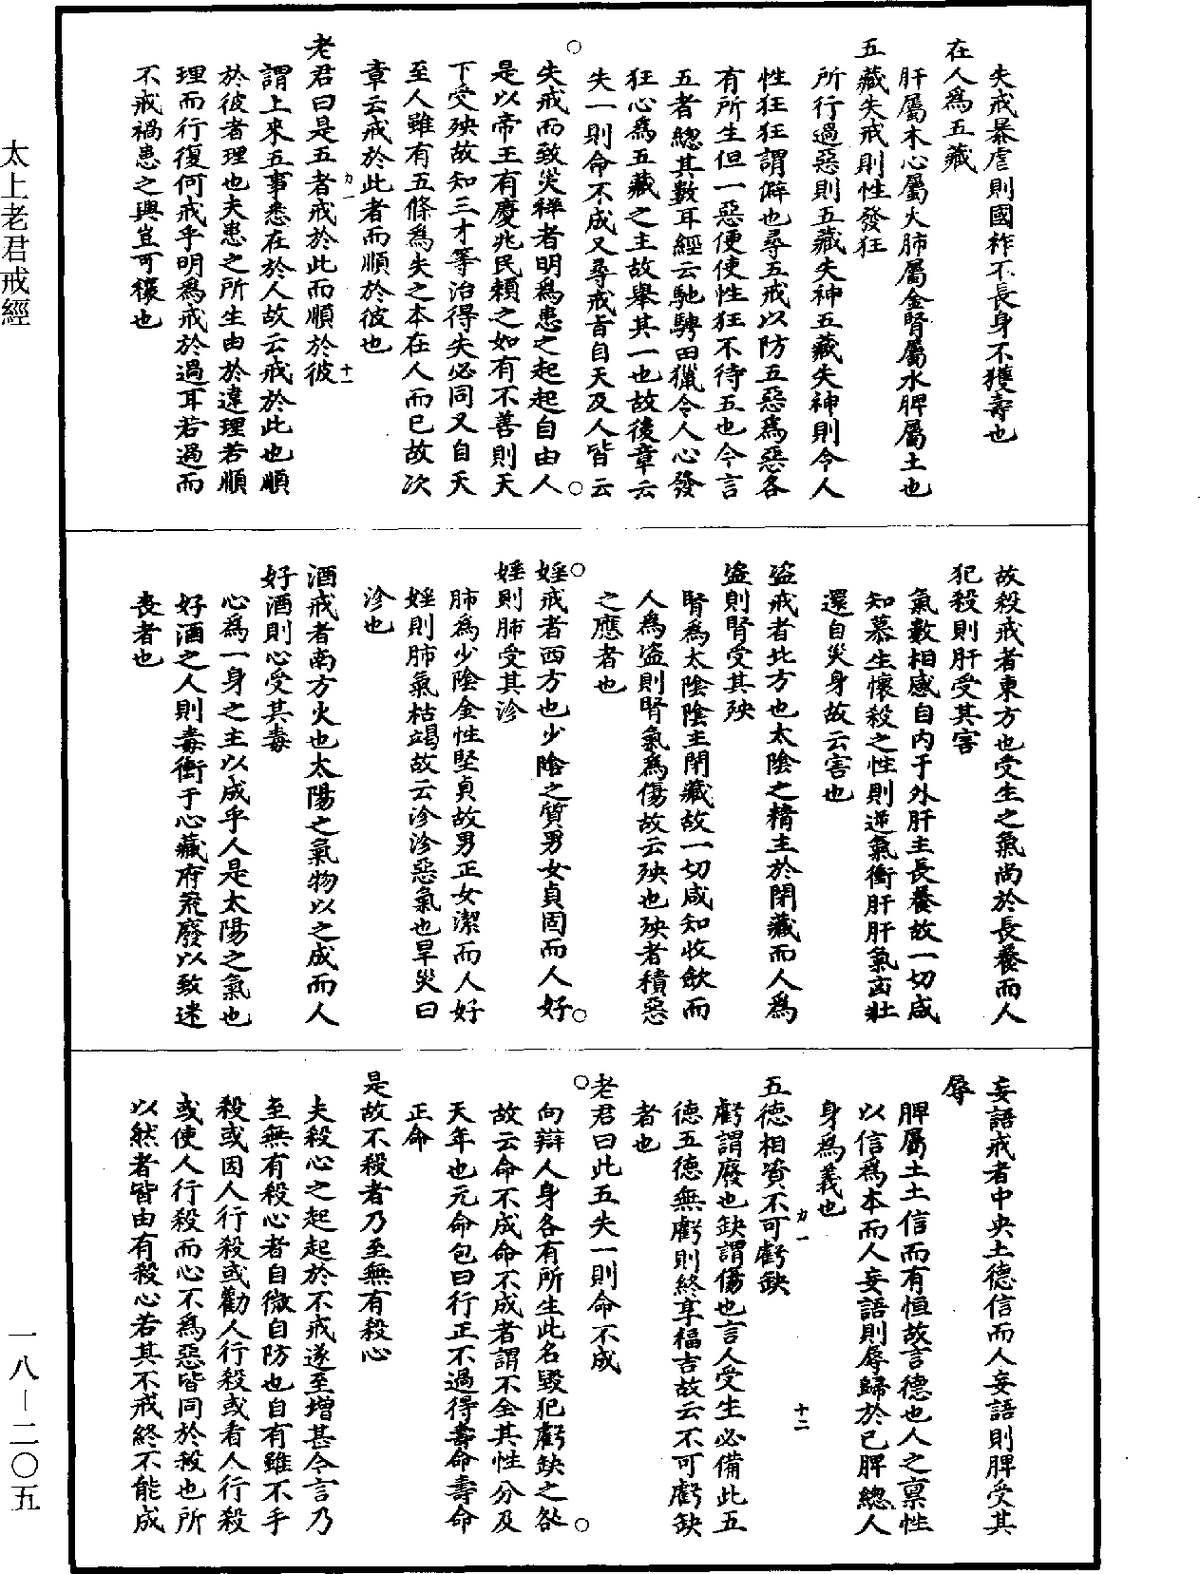 太上老君戒經
失戒暴虐則國祚不長身不獲壽也
在人爲五藏
肝屬木心屬火肺屬金腎屬水脾屬土也
五藏失戒則性發狂
所行過惡則五藏失神五藏失神則令人
性狂狂謂僻也尋五戒以防五惡爲惡各
有所生但一惡便使性狂不待五也今言
五者總其數耳經云馳騁田獵令人心發
狂心爲五藏之主故舉其一也故後章云
失一則命不成又尋戒旨自天及人皆云
失戒而致災禪者明爲患之起起自由人
是以帝王有慶兆民賴之如有不善則天
下受殃故知三才等治得失必同又自天
至人雖有五條爲失之本在人而已故次
章云戒於此者而順於彼也
老君曰是五者戒於此而順於彼
力一
十一
謂上來五事悉在於人故云戒於此也順
於彼者理也夫患之所生由於違理若順
理而行復何戒乎明爲戒於過耳若過而
不戒禍患之興豈可穰也
故殺戒者東方也受生之氣尚於長養而人
犯殺則肝受其害
氣數相感自內于外肝主長養故一切咸
知慕生懷殺之性則逆氣衝肝肝氣亟壯
還自災身故云害也
盜戒者北方也太陰之精主於閉藏而人爲
盜則腎受其殃
腎爲太陰陰主閉藏故一切咸知收斂而
人爲盜則腎氣爲傷故云殃也殃者積惡
之應者也
婬戒者西方也少陰之質男女貞固而人好
婬則肺受其沴
肺爲少陰金性堅貞故男正女潔而人好
婬則肺氣枯竭故云沴沴惡氣也旱災曰
沴也
酒戒者南方火也太陽之氣物以之成而人
好酒則心受其毒
心為一身之主以成乎人是太陽之氣也
好酒之人則毒衝于心藏府荒廢以致迷
喪者也
妄語戒者中央土德信而人妄語則脾受其
辱
脾屬土土信而有恒故言德也人之稟性
以信爲本而人妄語則辱歸於己脾總人
身爲義也
五德相資不可虧缺
力一
十二
虧謂廢也缺謂傷也言人受生必備此五
德五德無虧則終享福吉故云不可虧缺
者也
老君曰此五失一則命不成
向辯人身各有所生此名毀犯虧缺之咎
故云命不成命不成者謂不全其性分及
天年也元命包曰行正不過得壽命壽命
正命
是故不殺者乃至無有殺心
夫殺心之起起於不戒遂至增甚今言乃
至無有殺心者自微自防也自有雖不手
殺或因人行殺或勸人行殺或看人行殺
或使人行殺而心不爲惡皆同於殺也所
以然者皆由有殺心若其不戒終不能成
一八—二〇五